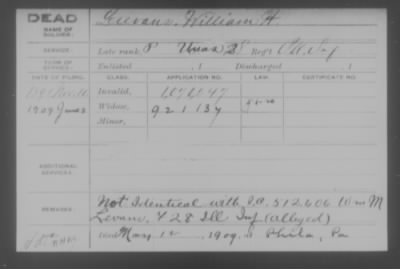 DEAD
NAME OF SOLDIER:
William H.
SERVICE:
Late rank, P Reg't Inf
TERM OF SERVICE:
Enlisted , 1 Discharged , 1
DATE OF FILING. CLASS. APPLICATION NO. LAW. CERTIFICATE NO.
Invalid,
1909 June 3 Widow, 921 137
Minor,
ADDITIONAL SERVICES:
REMARKS:
Not Identical with I.C. 512.606 Wm M
Levans, 428 Ill Inf (alleged)
Died May 12 1909, at Phila, Pa